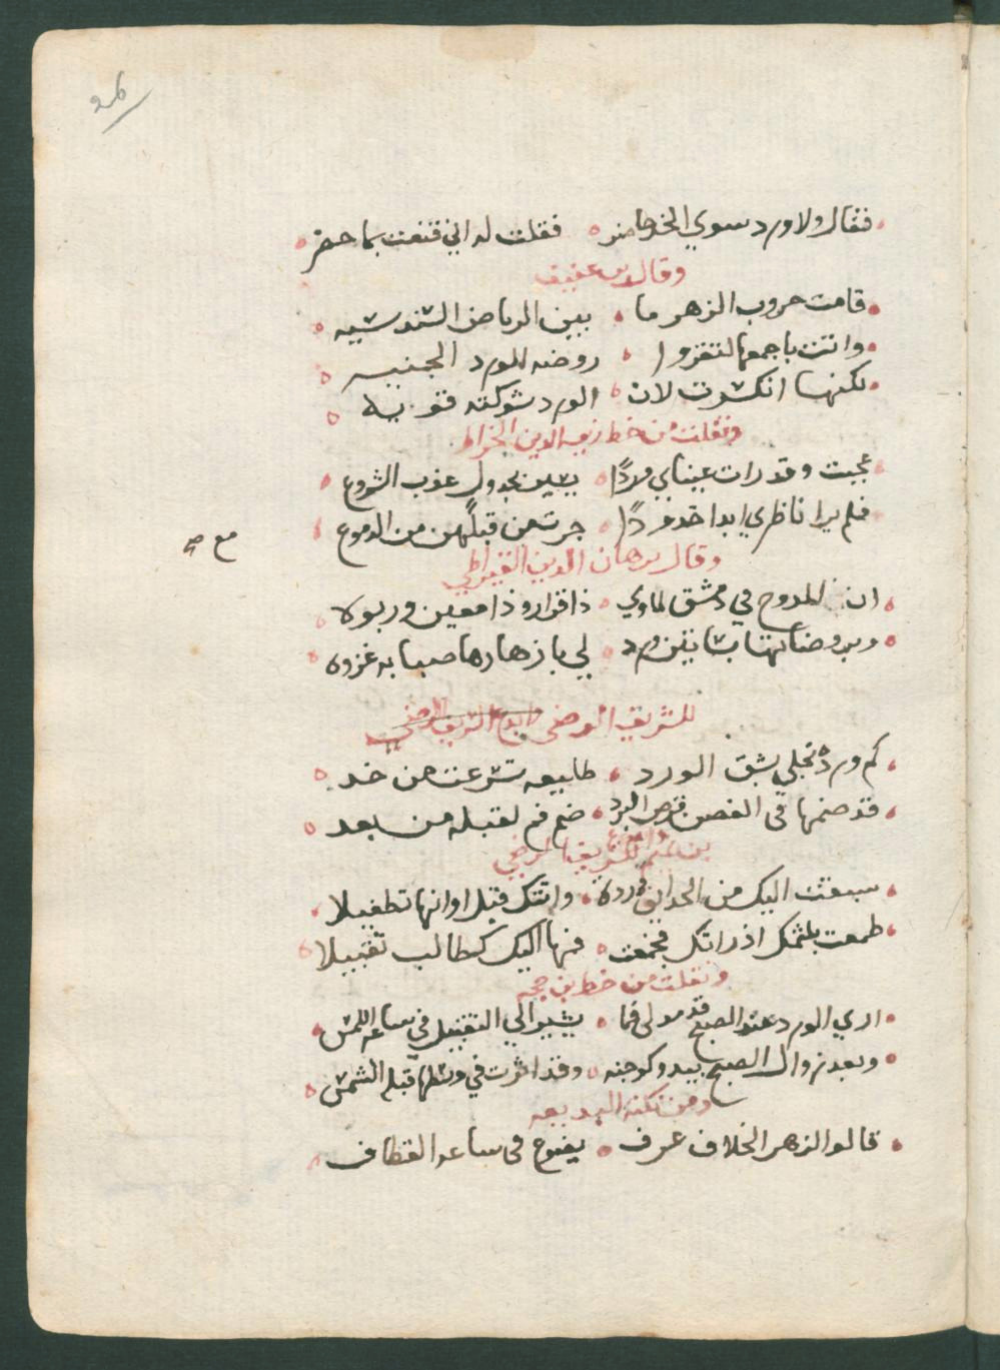 فقال ولا ورد سوي الخد حاضر ه فقلت له اني قنعت بما حضر
وقال بن عفيف
قامت حروب الزهر ما بين الرياض السندسيه
واتت باجمعها لتغزوا روضه الورد الجنيه
لكنها انكسرت لان الورد شوكته قويه
ونقلت من خط زين الدين الخراط
عجبت وقد رات عيناي وردًا بجدول عذب الشروع
فلم يرا ناظري ابدا خدودًا جرت من قبلهن من الدموع
وقال برهان الدين القيراطي
ان المدوح في دمشق لماوي ذا قرار وذا معين وربوه
وبروضاتها بساتين ورد لي بازهارها صبابه غزوه
للشريف الرضي
كم وردة تحكي بسبق الورد طليعه تسرعت من خد
قد ضمها في الغصن قرص البرد ضم فم لقبله من بعد
سبقت اليك من الحدايق وردة واتتك قبل اوانها تطفيلا
طمعت بلثمك اذ راتك فجمعت فمها اليك كطالب تقبيلا
ونقلت من خط بن حجه
اري الورد عند الصبح قد مد لي فما يشير الي التقبيل في ساعه اللمس
وبعد زوال الصبح يبدو كوجنه وقد اثرت في وسطها قبله الشمس
ومن نكته البديعه
قالوا لزهر الخلاف عرف يضوع في ساعه القطاف